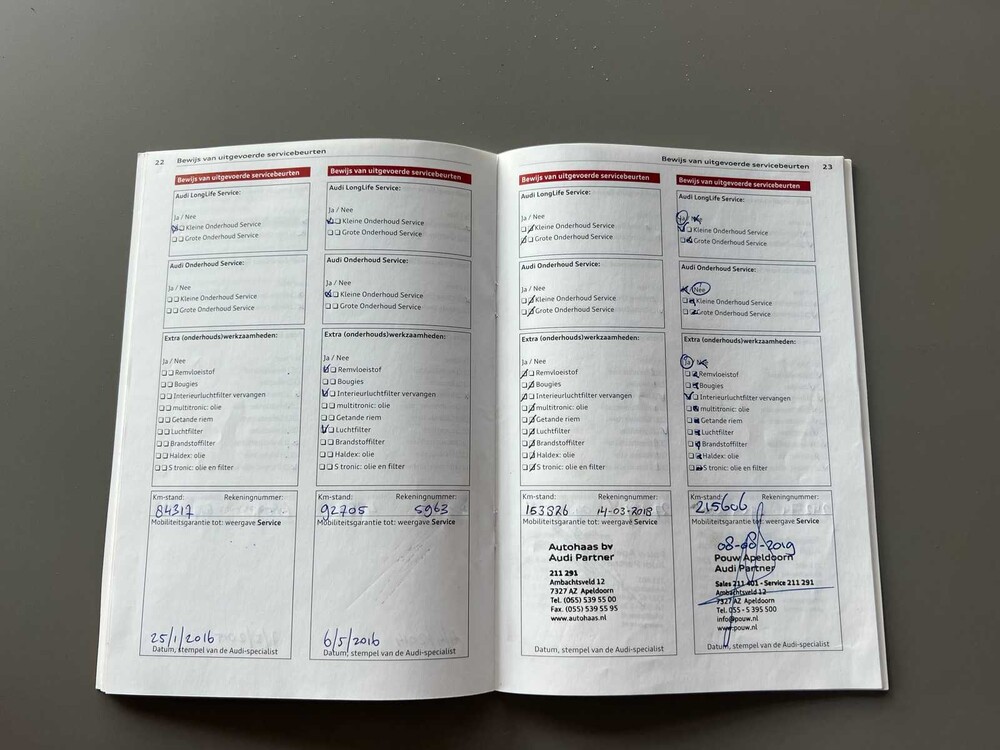 22 Bewijs van uitgevoerde servicebeurten
Bewijs van uitgevoerde servicebeurten
Audi LongLife Service:
Ja / Nee
Kleine Onderhoud Service
Grote Onderhoud Service
Audi Onderhoud Service:
Ja / Nee
Kleine Onderhoud Service
Grote Onderhoud Service
Extra (onderhouds)werkzaamheden:
Ja / Nee
Remvloeistof
Bougies
Interieurluchtfilter vervangen
multitronic: olie
Getande riem
Luchtfilter
Brandstoffilter
Haldex: olie
S tronic: olie en filter
Km-stand: Rekeningnummer:
84317
Mobiliteitsgarantie tot: weergave Service
25/1/2016
Datum, stempel van de Audi-specialist
Bewijs van uitgevoerde servicebeurten
Audi LongLife Service:
Ja / Nee
Kleine Onderhoud Service
Grote Onderhoud Service
Audi Onderhoud Service:
Ja / Nee
Kleine Onderhoud Service
Grote Onderhoud Service
Extra (onderhouds)werkzaamheden:
Ja / Nee
Remvloeistof
Bougies
Interieurluchtfilter vervangen
multitronic: olie
Getande riem
Luchtfilter
Brandstoffilter
Haldex: olie
S tronic: olie en filter
Km-stand: Rekeningnummer:
92705 5963
Mobiliteitsgarantie tot: weergave Service
6/5/2016
Datum, stempel van de Audi-specialist
Bewijs van uitgevoerde servicebeurten 23
Bewijs van uitgevoerde servicebeurten
Audi LongLife Service:
Ja / Nee
Kleine Onderhoud Service
Grote Onderhoud Service
Audi Onderhoud Service:
Ja / Nee
Kleine Onderhoud Service
Grote Onderhoud Service
Extra (onderhouds)werkzaamheden:
Ja / Nee
Remvloeistof
Bougies
Interieurluchtfilter vervangen
multitronic: olie
Getande riem
Luchtfilter
Brandstoffilter
Haldex: olie
S tronic: olie en filter
Km-stand: Rekeningnummer:
153826 14-03-2018
Mobiliteitsgarantie tot: weergave Service
Autohaas bv
Audi Partner
211 291
Ambachtsveld 12
7327 AZ Apeldoorn
Tel. (055) 539 55 00
Fax. (055) 539 55 95
www.autohaas.nl
Datum, stempel van de Audi-specialist
Bewijs van uitgevoerde servicebeurten
Audi LongLife Service:
Ja / Nee
Kleine Onderhoud Service
Grote Onderhoud Service
Audi Onderhoud Service:
Nee
Kleine Onderhoud Service
Grote Onderhoud Service
Extra (onderhouds)werkzaamheden:
Ja / Nee
Remvloeistof
Bougies
Interieurluchtfilter vervangen
multitronic: olie
Getande riem
Luchtfilter
Brandstoffilter
Haldex: olie
S tronic: olie en filter
Km-stand: Rekeningnummer:
215606
Mobiliteitsgarantie tot: weergave Service
08-08-2019
Pouw Apeldoorn
Audi Partner
Sales 211 401 - Service 211 291
Ambachtsveld 12
7327 AZ Apeldoorn
Tel. 055 - 5 395 500
info@pouw.nl
www.pouw.nl
Datum, stempel van de Audi-specialist